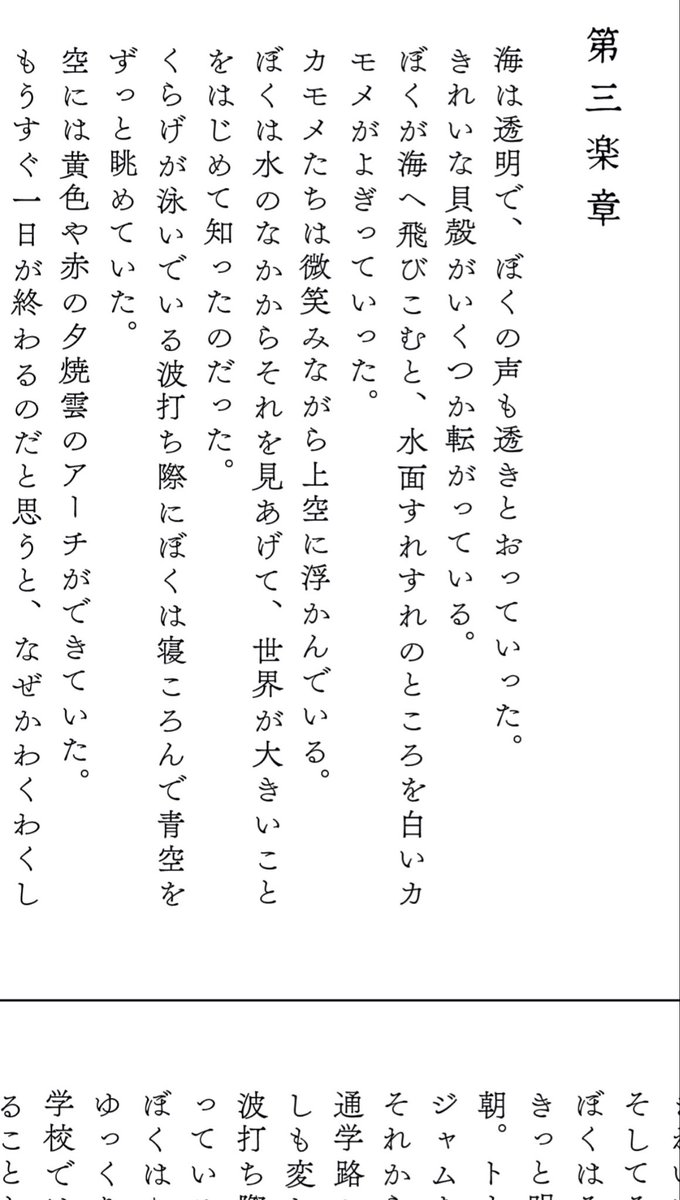 第三楽章
海は透明で、ぼくの声も透きとおっていった。
きれいな貝殻がいくつか転がっている。
ぼくが海へ飛びこむと、水面すれすれのところを白いカ
モメがよぎっていった。
カモメたちは微笑みながら上空に浮かんでいる。
ぼくは水のなかからそれを見あげて、世界が大きいこと
をはじめて知ったのだった。
くらげが泳いでいる波打ち際にぼくは寝ころんで青空を
ずっと眺めていた。
空には黄色や赤の夕焼雲のアーチができていた。
もうすぐ一日が終わるのだと思うと、なぜかわくわくし
そして
ぼくは
きっと
朝。ト
ジャム
それから
通学路
しも変
波打ち際
ってい
ぼくは
ゆっく
学校では
ること